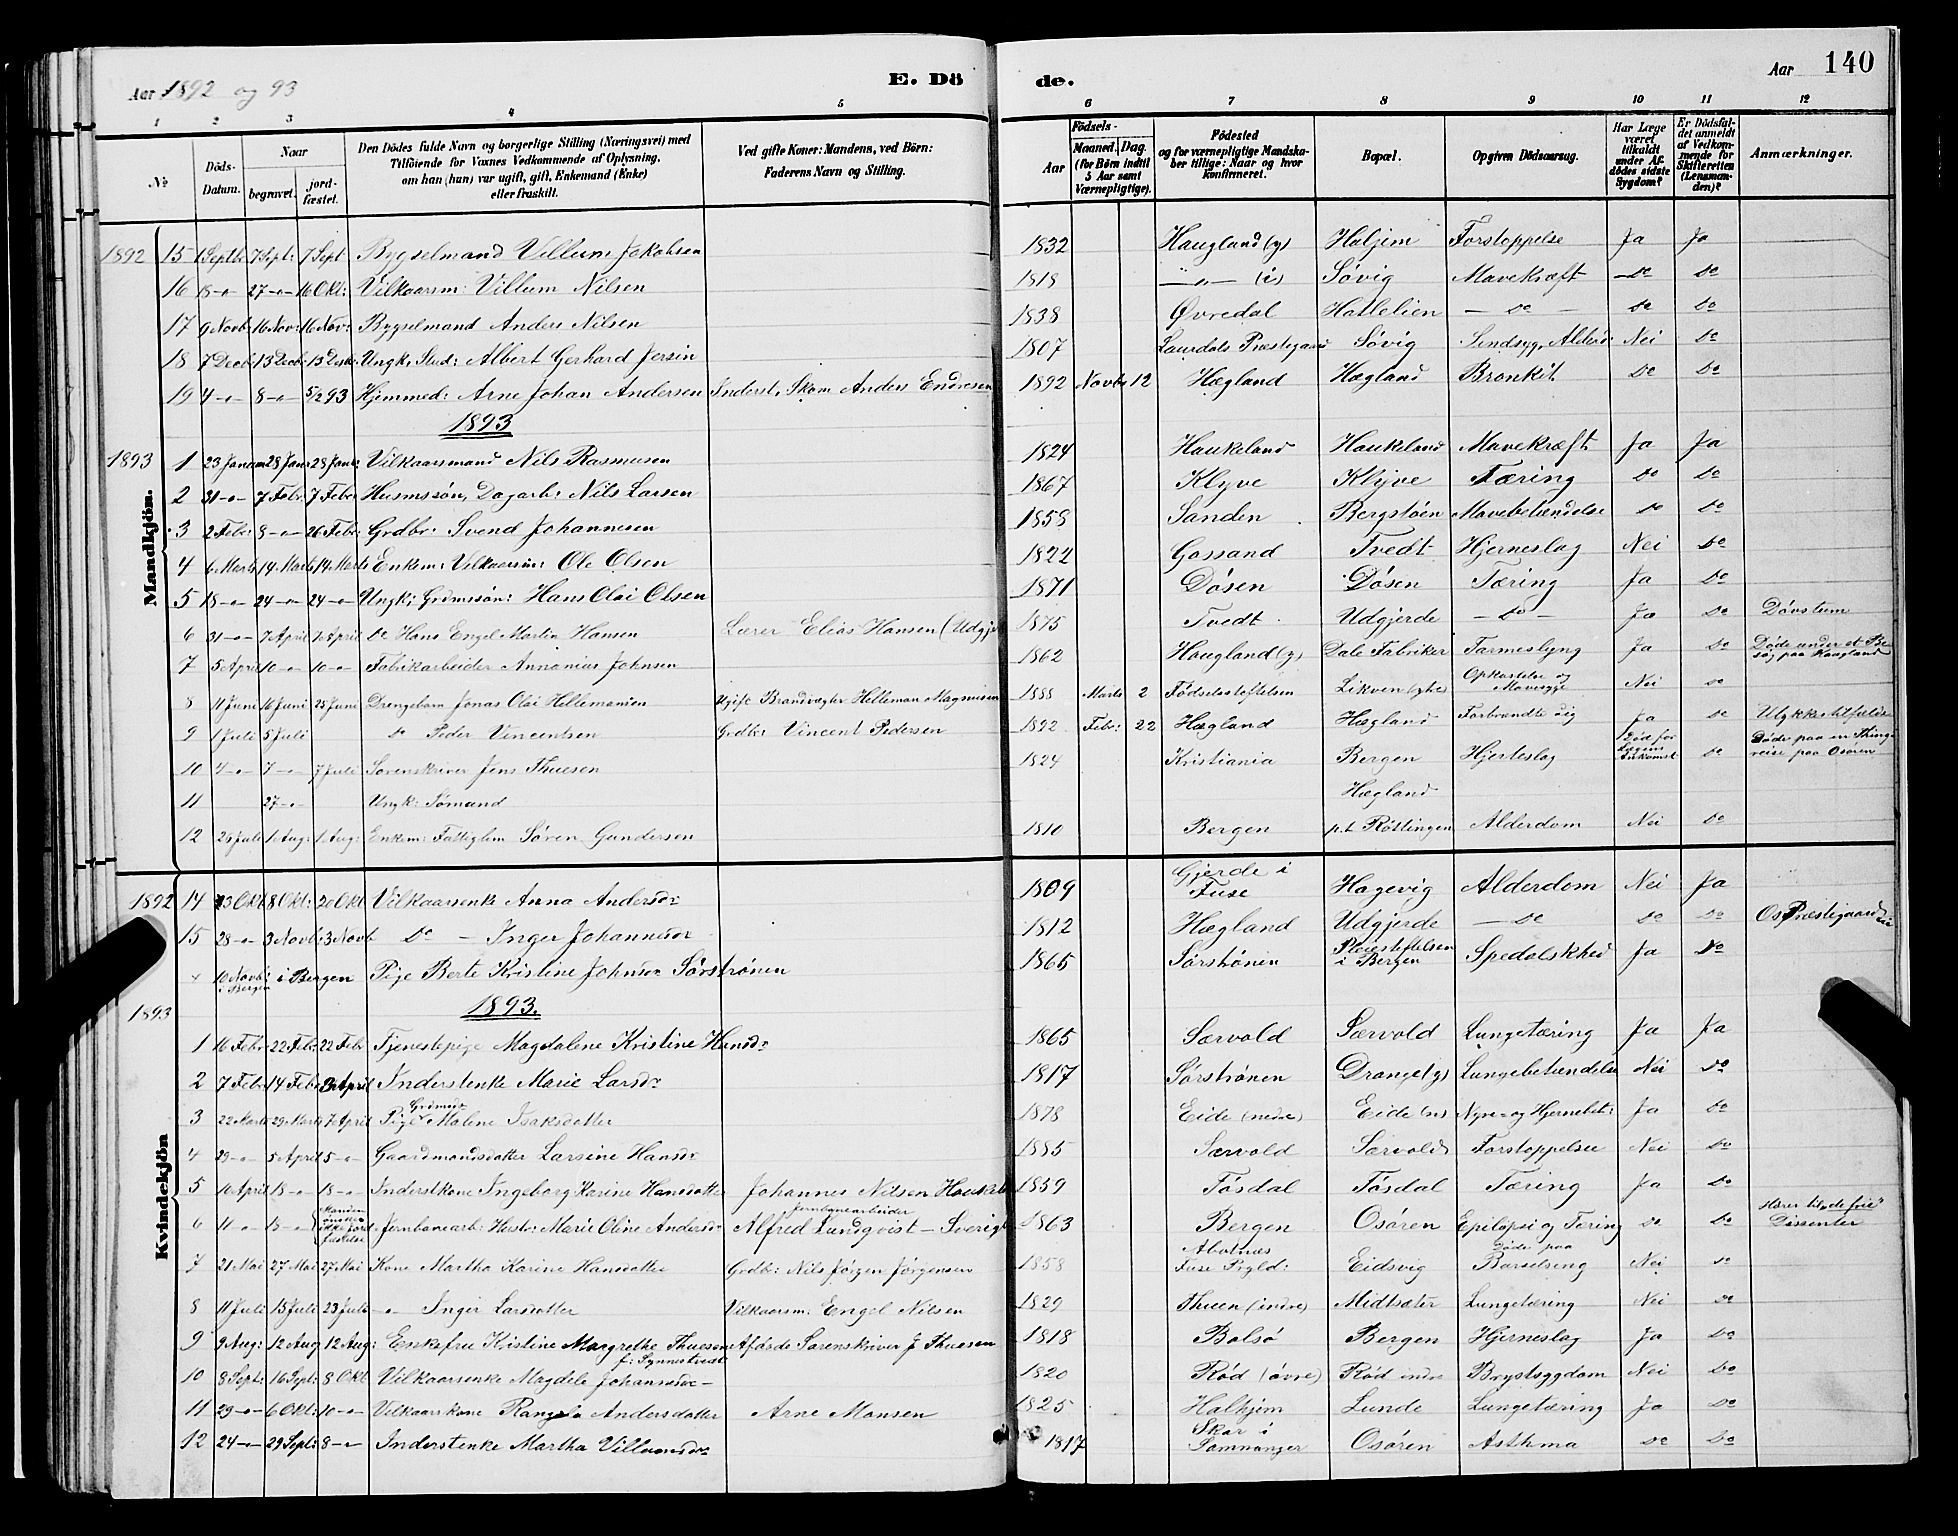 Aar 1892 og 93 E. Dö de. Aar 140
1 2 3 4 5 6 7 8 9 10 11 12
№ Döds-Datum. Naar begravet. jord-fæstet. Den Dödes fulde Navn og borgerlige Stilling (Næringsvei) med Tilföiende for Voxnes Vedkommende af Oplysning, om han (hun) var ugift, gift, Enkemand (Enke) eller fraskilt. Ved gifte Koner: Mandens, ved Börn: Faderens Navn og Stilling. Födsels- Aar Maaned. Dag. (for Börn indtil 5 Aar samt Værnepligtige). Födested og for værnepligtige Mandskaber tillige: Naar og hvor konfirmeret. Bopæl. Opgiven Dödsaarsag. Har Læge været tilkaldt under Afdödes sidste Sygdom? Er Dödsfaldet anmeldt af Vedkommende for Skifteretten (Lensmanden)? Anmærkninger.
Mandkjön.
1892 15 1 Septbr 7 Sept: 7 Sept Bygselmand Villum Jakobsen 1832 Haugland (y) Haljem Forstoppelse Ja Ja
16 18 -"- 27 -"- 16 Okt: Vilkaarsm: Villum Nilsen 1818 -"- (i) Søvig Mavekræft Do Do
17 9 Novb: 16 Nov: 16 Nov: Bygselmand Anders Nilsen 1838 Øvredal Hattelien - Do - Do Do
18 7 Decb: 13 Decb: 13 Ungk, Stud: Albert Gerhard Jersin 1807 Laurdals Præstegaard Søvig Sindsyg, Alderd: Nei Do
19 4 -"- 8 -"- 5/2 93 Hjemmed: Arne Johan Andersen Inderst, Skom Anders Endresen 1892 Novbr 12 Hægland Hægland Bronkit Do Do
1893
1893 1 23 Januar 28 Jan: 28 Janr: Vilkaarsmand Nils Rasmusen 1824 Haukeland Haukeland Mavekræft Ja Ja
2 31 -"- 7 Febr 7 Febr Husmssøn, Dagarb: Nils Larsen 1867 Klyve Klyve Tæring Do Do
3 2 Febr: 8 -"- 26 Febr: Grdbr: Svend Johannesen 1858 Sanden Bergstøen Mavebetændelse Do Do
4 6 Marts 14 Marts 14 Marts Enkem: Vilkaarsm: Ole Olsen 1822 Gassand Tvedt Hjerneslag Nei Do
5 18 -"- 24 -"- 24 -"- Ungk; Grdmssøn: Hans Olai Olsen 1871 Døsen Døsen Tæring Ja Do
6 31 -"- 7 April 7 April Do Hans Engel Martin Hansen Lærer Elias Hansen (Udgj: 1875 Tvedt Udgjerde - Do - Ja Do Døvstum
7 5 April 10 -"- 10 -"- Fabrikarbeider Annanias Johnsen 1862 Haugland (y) Dale Fabriker Tarmeslyng Ja Do Døde under et Besøg paa Haugland
8 11 Juni 16 Juni 25 Juni Drengebarn Jonas Olai Hellemanien Ugift Brandvagter Helleman Magnusen 1888 Marts 2 Fødselsstiftelsen Likven (ytre) Opkastelse og Mavesyge Nei Do
9 1 Juli 5 Juli Do Peder Vincentsen Grdbr: Vincent Pedersen 1892 Febr: 22 Hægland Hægland Forbrændte sig Ja Do Ulykkestilfælde
10 4 -"- 7 -"- 7 Juli Sorenskriver Jens Thuesen 1824 Kristiania Bergen Hjerteslag Død før Lægens Ankomst Do Døde paa en Thingreise paa Osøren
11 27 -"- Ungk: Sømand Hægland
12 28 Juli 1 Aug: 1 Aug: Enkem: Fattiglem Søren Gundersen 1810 Bergen p.t. Røttingen Alderdom Nei Do
Kvindekjön
1892 14 13 Okt 18 Okt: 20 Okt Vilkaarsenke Anna Andersdr 1809 Gjerde i Fuse Hagevig Alderdom Nei Ja
15 28 -"- 3 Novb: 3 Novb Do - Inger Johannesdr 1812 Hægland Udgjerde - Do Do Do Os Præstegaard
10 Novb: i Bergen i Bergen Pige Berte Kristine Johnsdr Sørstrønen 1865 Sørstrønen Pleiestiftelsen i Bergen Spedalskhed Ja Do
1893 1893.
1 16 Febr 22 Febr: 22 Febr Tjenestepige Magdalene Kristine Hansdr 1865 Særvold Særvold Lungetæring Ja Ja
2 7 Febr 14 Febr 30 April Inderstenke Marie Larsdr 1817 Sørstrønen Drange (y) Lungebetændelse Nei Do
3 22 Marts 29 Marts 7 April Pige Grdmsdr Malene Isaksdatter 1878 Eide (nedre) Eide (n) Nyre- og Hjernebet: Ja Do
4 29 -"- 5 April 5 -"- Gaardmandsdatter Larsine Hansdr 1885 Særvold Særvold Forstoppelse Nei Do
5 10 April 18 -"- 18 -"- Inderstkone Ingeborg Karine Hansdatter Johannes Nilsen Haukel: 1859 Tøsdal Tøsdal Tæring Ja Do
6 11 -"- 15 -"- Manden ønsker ikke Jordfæstelse Jernbanearb: Hustr: Marie Oline Andersdr Jernbanearbeider Alfred Lundqvist - Sverige 1863 Bergen Osøren Epilepsi og Tæring Do Do Hører til "de frie" Dissenter
7 21 Mai 27 Mai 27 Mai Kone Martha Karine Hansdatter Grdbr: Nils Jørgen Jørgensen 1858 Abotnæs Fuse Prgld: Eidsvig Døde paa Barselseng Nei Do
8 11 Juli 15 Juli 23 Juli -"- Inger Larsdatter Vilkaarsm: Engel Nilsen 1829 Thuen (indre) Midtsæter Lungetæring Nei Do
9 9 Aug: 12 Aug 12 Aug: Enkefru Kristine Margrethe Thuesen f: Synnestvedt Afdøde Sorenskriver J Thuesen 1818 Bolsø Bergen Hjerneslag Ja Do
10 8 Sept: 16 Sept: 8 Okt Vilkaarsenke Magdele Johannesdr 1820 Rød (øvre) Rød indre Brystsygdom Nei Do
11 29 -"- 6 Okt: 10 -"- Vilkaarskone Rangela Andersdatter Arne Monsen 1825 Halhjem Lunde Lungetæring Ja Do
12 24 -"- 29 Sept: 8 -"- Inderstenke Martha Villumsdr 1817 Skar i Samnanger Osøren Asthma Do Do